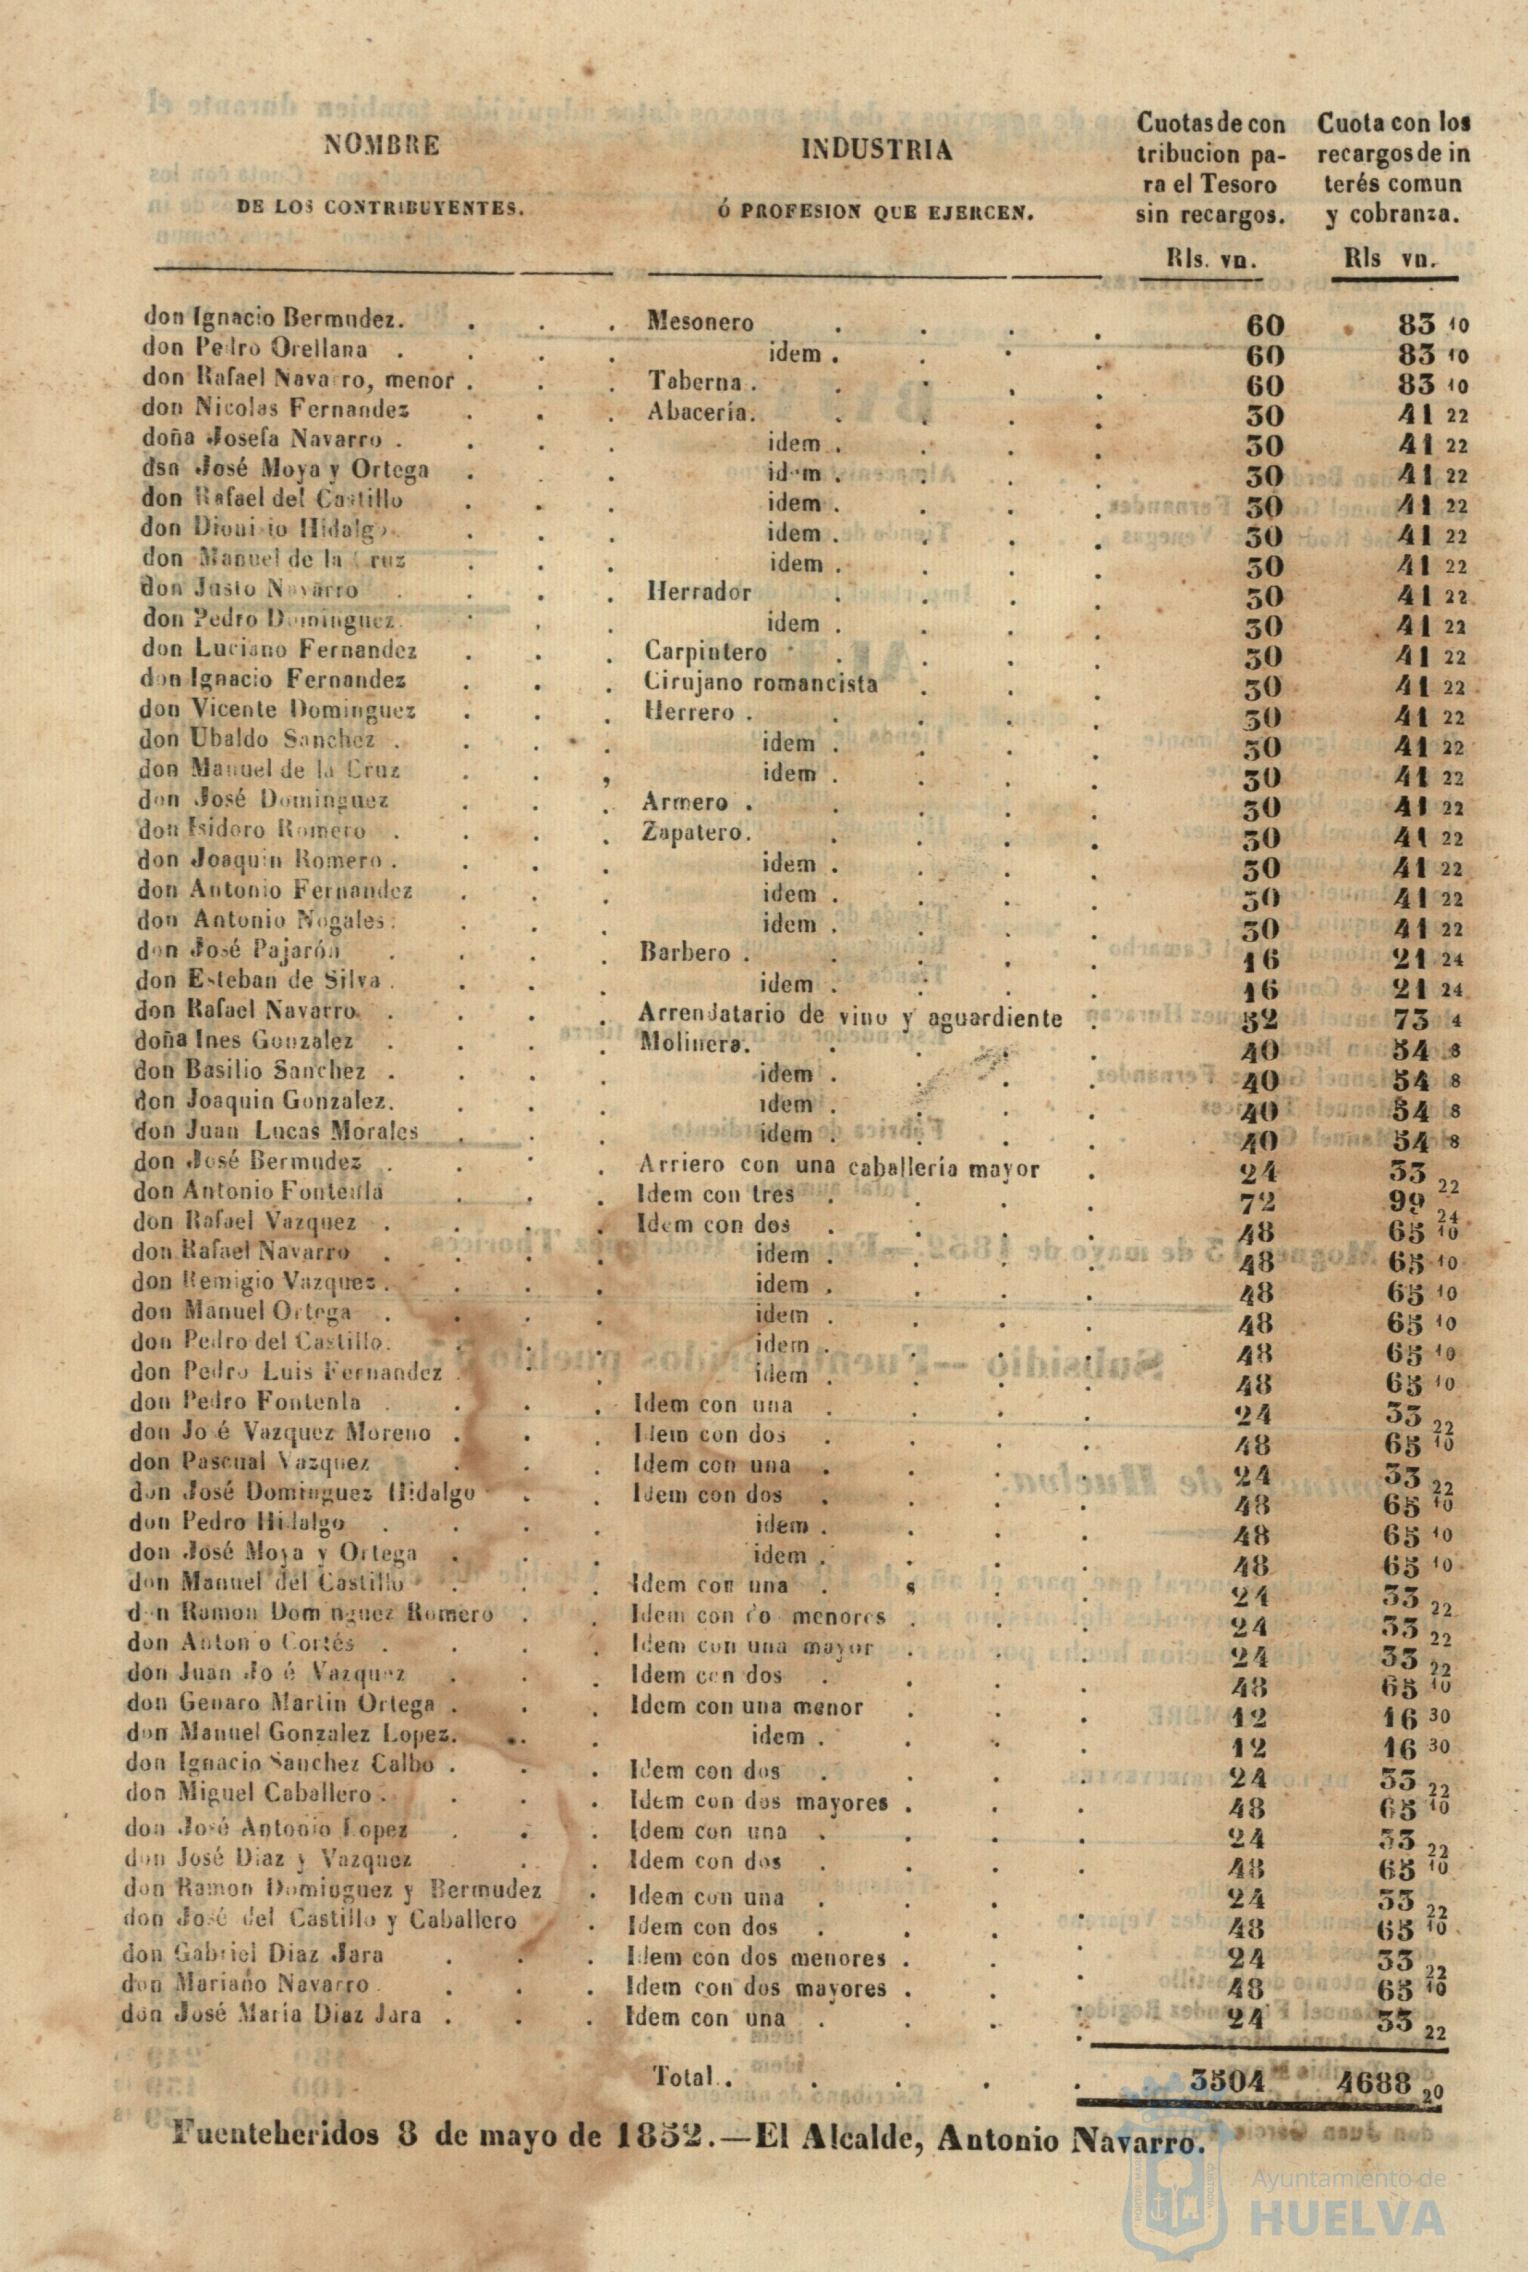 NOMBRE
DE LOS CONTRIBUYENTES.
INDUSTRIA
Ó PROFESION QUE EJERCEN.
Cuotas de con
tribucion pa-
ra el Tesoro
sin recargos.
Rls. vn.
Cuota con los
recargos de in
terés comun
y cobranza.
Rls vn.
don Ignacio Bermudez. Mesonero 60 83 10
don Pedro Orellana idem 60 83 10
don Rafael Navarro, menor Taberna 60 83 10
don Nicolas Fernandez Abacería. 30 41 22
doña Josefa Navarro idem 30 41 22
dsn José Moya y Ortega idem 30 41 22
don Rafael del Castillo idem 30 41 22
don Dionisio Hidalgo idem 30 41 22
don Manuel de la Cruz idem 30 41 22
don Justo Navarro Herrador 30 41 22
don Pedro Dominguez. idem 30 41 22
don Luciano Fernandez Carpintero 30 41 22
don Ignacio Fernandez Cirujano romancista 30 41 22
don Vicente Dominguez Herrero 30 41 22
don Ubaldo Sanchez idem 30 41 22
don Manuel de la Cruz idem 30 41 22
don José Dominguez Armero 30 41 22
don Isidoro Romero Zapatero. 30 41 22
don Joaquin Romero idem 30 41 22
don Antonio Fernandez idem 30 41 22
don Antonio Nogales. idem 30 41 22
don José Pajarón Barbero 16 21 24
don Esteban de Silva idem 16 21 24
don Rafael Navarro Arrendatario de vino y aguardiente 52 73 4
doña Ines Gonzalez Molinera. 40 54 8
don Basilio Sanchez idem 40 54 8
don Joaquin Gonzalez. idem 40 54 8
don Juan Lucas Morales idem 40 54 8
don José Bermudez Arriero con una caballería mayor 24 33 22
don Antonio Fontenla Idem con tres 72 99 24
don Rafael Vazquez Idem con dos 48 65 10
don Rafael Navarro idem 48 65 10
don Remigio Vazquez idem 48 65 10
don Manuel Ortega idem 48 65 10
don Pedro del Castillo. idem 48 65 10
don Pedro Luis Fernandez idem 48 65 10
don Pedro Fontenla Idem con una 24 33 22
don Jo é Vazquez Moreno Idem con dos 48 65 10
don Pascual Vazquez Idem con una 24 33 22
don José Dominguez Hidalgo Idem con dos 48 65 10
don Pedro Hidalgo idem 48 65 10
don José Moya y Ortega idem 48 65 10
don Manuel del Castillo Idem con una 24 33 22
don Ramon Dominguez Romero Idem con do menores 24 33 22
don Antonio Cortés Idem con una mayor 24 33 22
don Juan Jo é Vazquez Idem con dos 48 65 10
don Genaro Martin Ortega Idem con una menor 12 16 30
don Manuel Gonzalez Lopez. idem 12 16 30
don Ignacio Sanchez Calbo Idem con dos 24 33 22
don Miguel Caballero Idem con dos mayores 48 65 10
don José Antonio Lopez Idem con una 24 33 22
don José Diaz y Vazquez Idem con dos 48 65 10
don Ramon Dominguez y Bermudez Idem con una 24 33 22
don José del Castillo y Caballero Idem con dos 48 65 10
don Gabriel Diaz Jara Idem con dos menores 24 33 22
don Mariano Navarro Idem con dos mayores 48 65 10
don José María Diaz Jara Idem con una 24 33 22
Total. 3504 4688 20
Fuenteheridos 8 de mayo de 1852.—El Alcalde, Antonio Navarro.
Ayuntamiento de
HUELVA